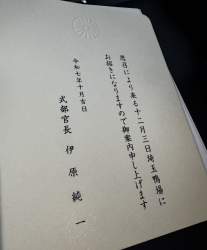 思召により来る十二月三日埼玉鴨場に
お招きになりますので御案内申し上げます
令和七年十月吉日
式部官長 伊原純一